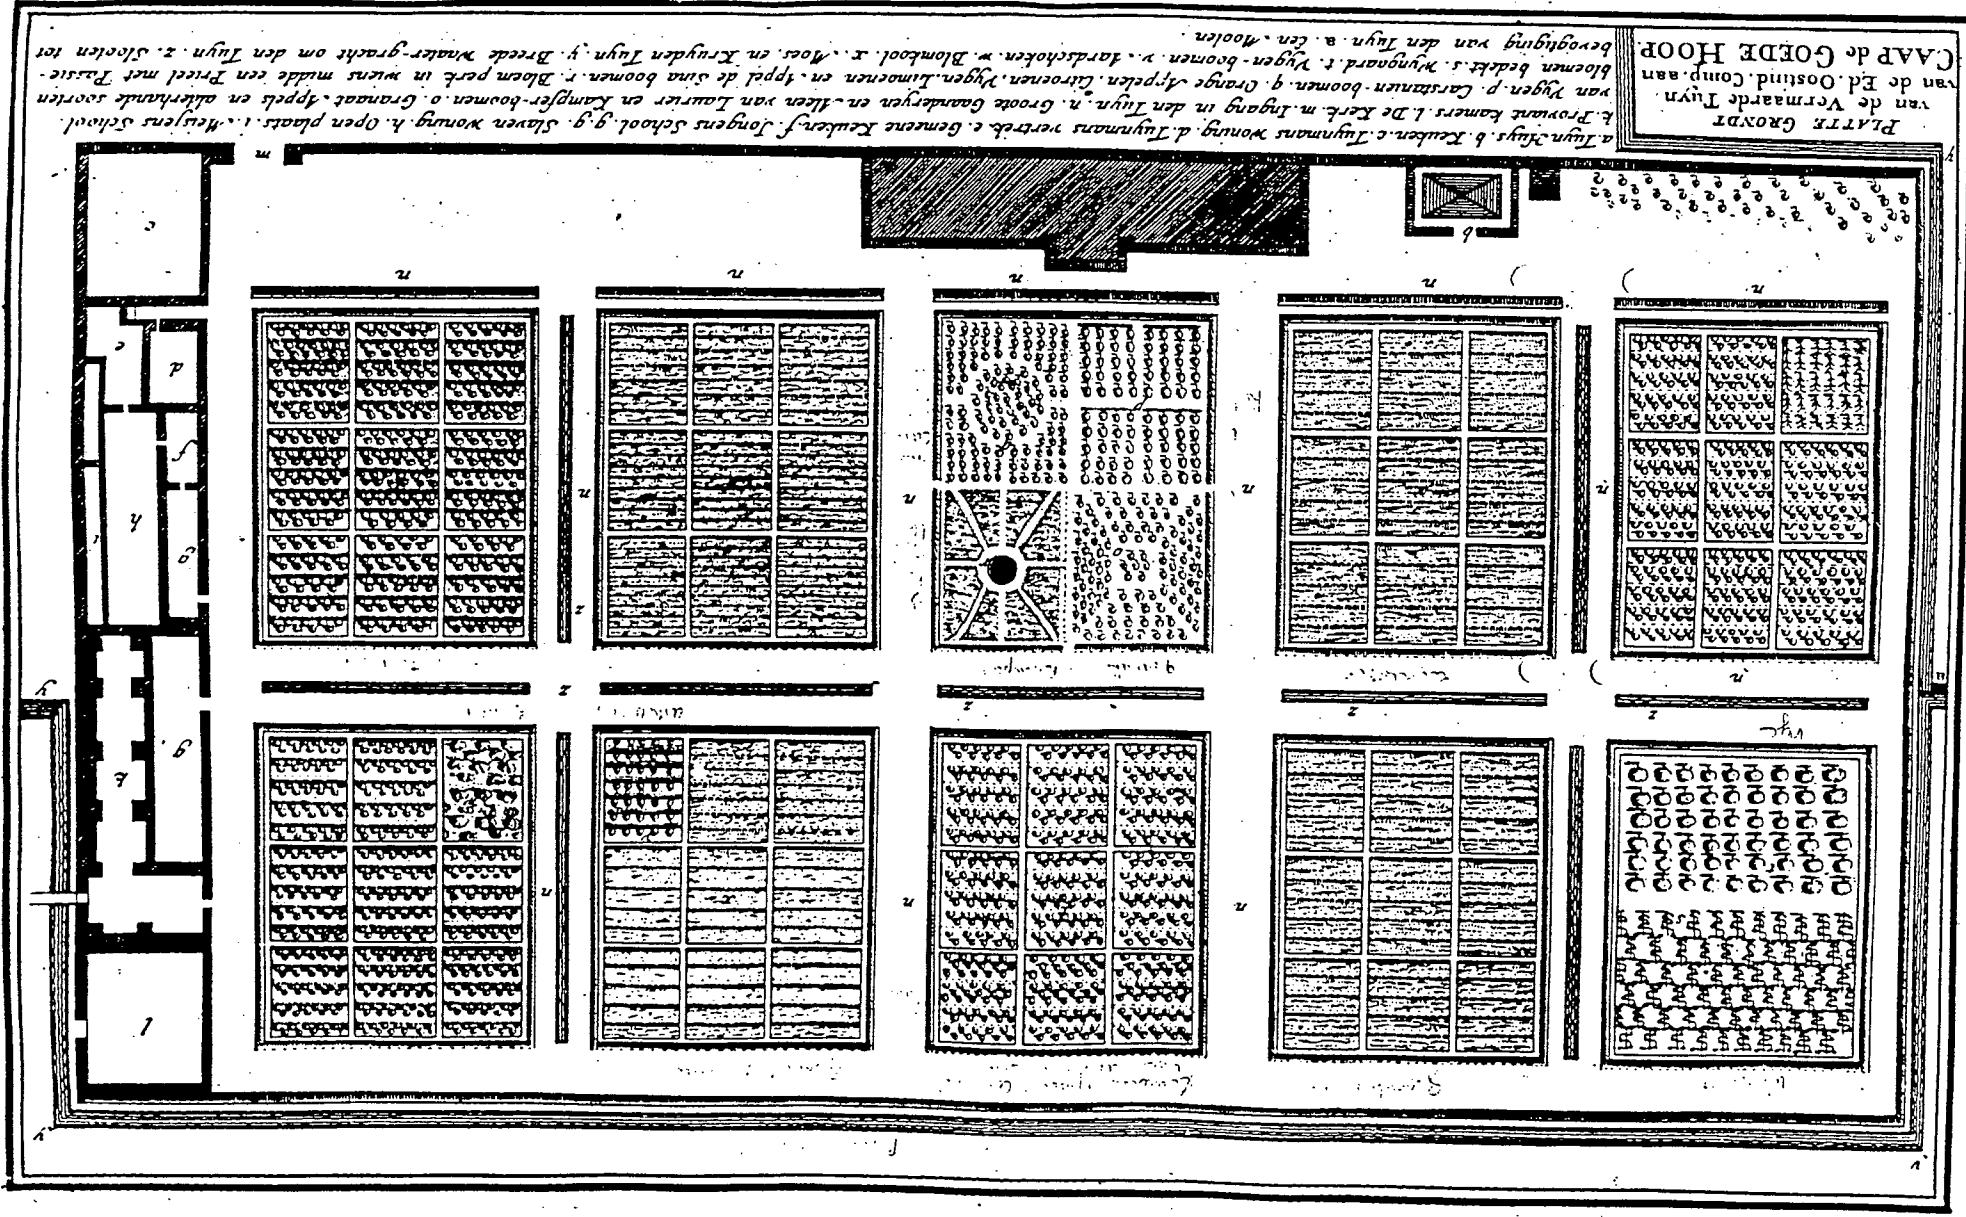 PLATTE GRONDT
van de Vermaarde Tuyn
van de Ed. Oostind. Comp. aan
CAAP de GOEDE HOOP
a. Tuyn Huys. b. Keuken. c. Tuynmans Woning. d. Tuynmans vertrek. e. Gemeene Keuken. f. Jongens School. g.g. Slaven Woning. h. Open plaats. i. Meisjens School.
k. Proviant kamers. l. De Kerk. m. Ingang in den Tuyn. n. Groote Gaanderyen en Aleen van Laurier en Kampfer-boomen. o. Granaat Appels en allerhande soorten
van Vygen. p. Carstanien-boomen. q. Orange Appelen. Citroenen. Vygen. Limoenen en Appel de Sina boomen. r. Bloem perk in wiens midde een Prieel met Passie-
bloemen bedekt. s. Wyngaard. t. Vygen-boomen. v. Aardschoken. w. Blomkool. x. Moes en Kruyden Tuyn. y. Breede Waater-gracht om den Tuyn. z. Slooten tot
bevogtiging van den Tuyn. a. Een Moolen.
y
m
c
b
n
n
n
n
n
e
d
f
h
i
g
n
n
n
n
z
y
z
z
z
z
n
g
k
n
n
n
x
l
y